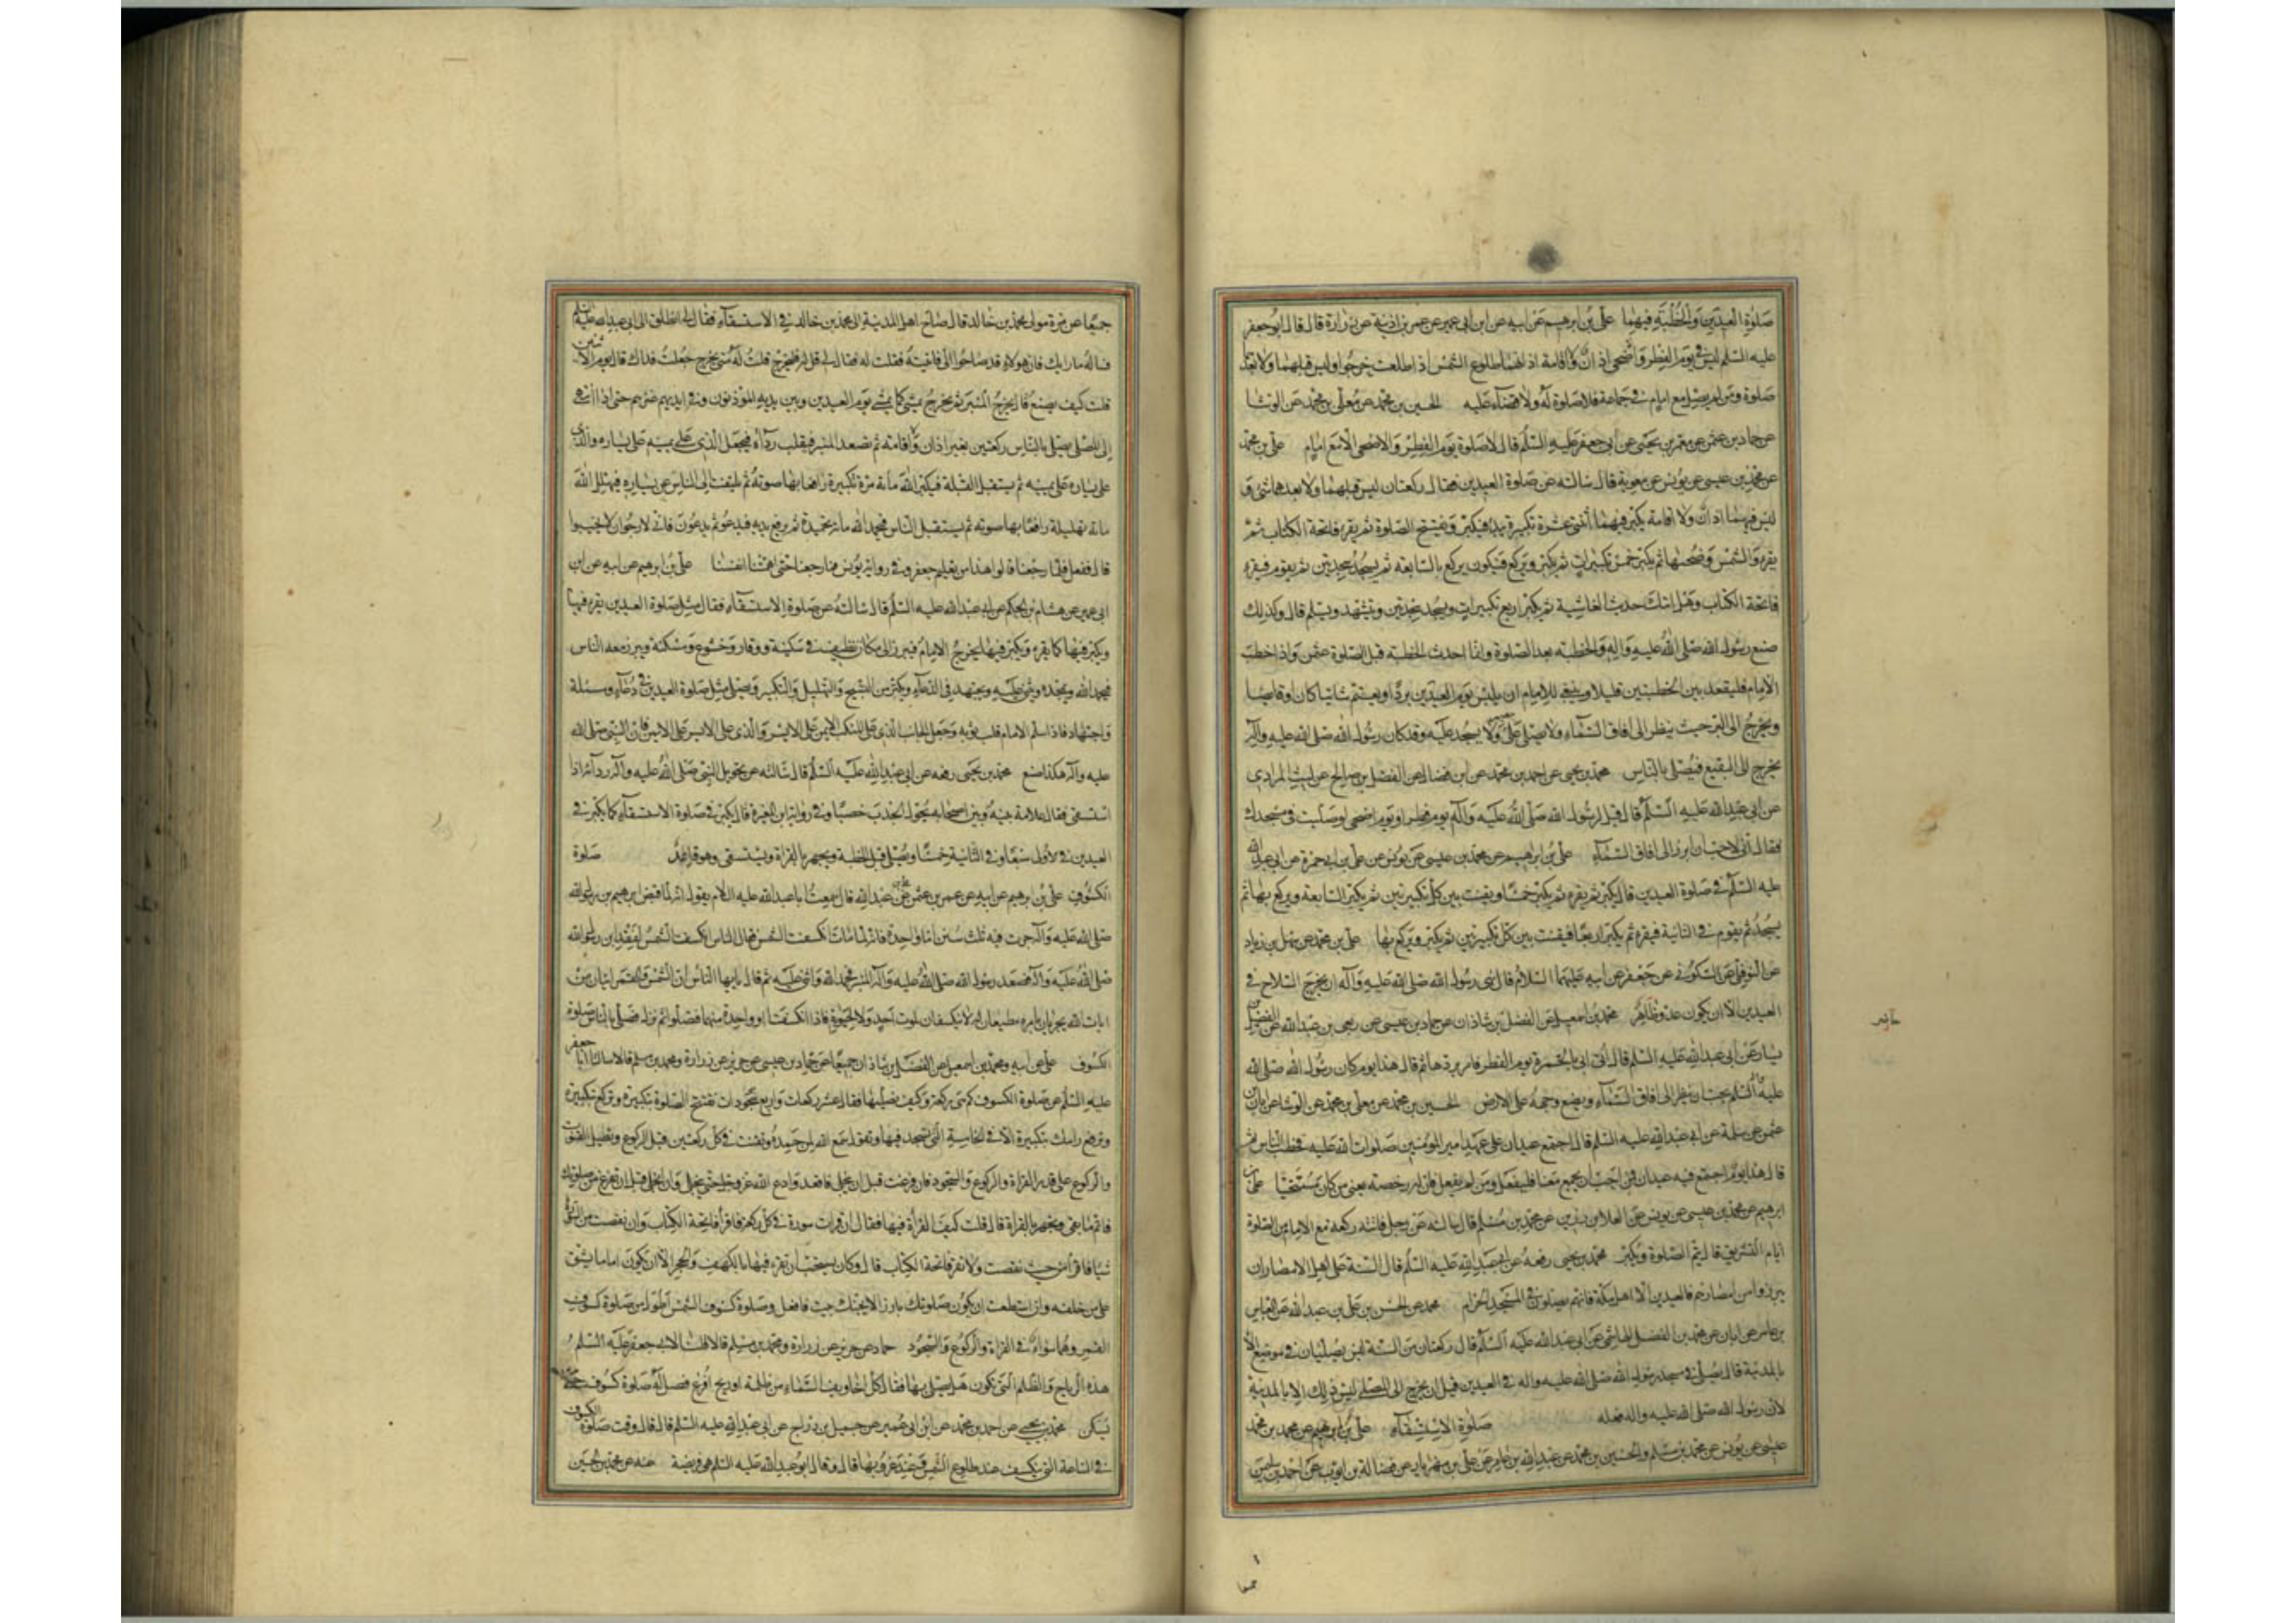 صلوة العيدين والخطبة فيهما علي بن ابرهيم عن ابيه عن ابن ابي عمير عن عمر بن اذينة عن زرارة قال قال ابو جعفر
عليه السلم ليس في يوم الفطر والاضحى اذان ولا اقامة اذانهما طلوع الشمس اذا طلعت خرجوا وليس قبلهما ولا بعدهما
صلوة ومن لم يصل مع امام في جماعة فلا صلوة له ولا قضاء عليه الحسين بن محمد عن معلى بن محمد عن الوشا
عن حماد بن عثمن عن معمر بن يحيى عن ابي جعفر عليه السلم قال لا صلوة يوم الفطر والاضحى الا مع امام علي بن محمد
عن محمد بن عيسى عن يونس عن معوية قال سالته عن صلوة العيدين فقال ركعتان ليس قبلهما ولا بعدهما شئ و
ليس فيهما اذان ولا اقامة يكبر فيهما اثنتي عشرة تكبيرة يبدا فيكبر ويفتتح الصلوة ثم يقرء فاتحة الكتاب ثم
يقرء والشمس وضحيها ثم يكبر خمس تكبيرات ثم يكبر ويركع فيكون يركع بالسابعة ثم يسجد سجدتين ثم يقوم فيقرء
فاتحة الكتاب وهل اتيك حديث الغاشية ثم يكبر اربع تكبيرات ويسجد سجدتين ويتشهد ويسلم قال وكذلك
صنع رسول الله صلى الله عليه واله والخطبة بعد الصلوة وانما احدث الخطبة قبل الصلوة عثمن واذا خطب
الامام فليقعد بين الخطبتين قليلا وينبغي للامام ان يلبس يوم العيدين بردا ويعتم شاتيا كان او قايضا
ويخرج الى البر حيث ينظر الى افاق السماء ولا يصلي على حصير ولا يسجد عليه وقد كان رسول الله صلى الله عليه واله
يخرج الى البقيع فيصلى بالناس محمد بن يحيى عن احمد بن محمد عن ابن فضال عن المفضل بن صالح عن ليث المرادي
عن ابي عبد الله عليه السلم قال قيل لرسول الله صلى الله عليه واله يوم فطر او يوم اضحى لو صليت في مسجدك
فقال اني لاحب ان ابرز الى افاق السماء علي بن ابرهيم عن محمد بن عيسى عن يونس عن علي بن ابي حمزة عن ابي عبد الله
عليه السلم في صلوة العيدين قال يكبر ثم يقرء ثم يكبر خمسا ويقنت بين كل تكبيرتين ثم يكبر السابعة ويركع بها ثم
يسجد ثم يقوم في الثانية فيقرء ثم يكبر اربعا فيقنت بين كل تكبيرتين ثم يكبر ويركع بها علي بن محمد عن سهل بن زياد
عن النوفلي عن السكوني عن جعفر عن ابيه عليهما السلام قال نهى رسول الله صلى الله عليه واله ان يخرج السلاح في
العيدين الا ان يكون عدو ظاهر محمد بن اسمعيل عن الفضل بن شاذان عن حماد بن عيسى عن ربعي بن عبد الله عن الفضيل بن
يسار عن ابي عبد الله عليه السلم قال اتي ابي بالخمرة يوم الفطر فامر بردها ثم قال هذا يوم كان رسول الله صلى الله
عليه واله السلم يحب ان ينظر الى افاق السماء ويضع وجهه على الارض الحسين بن محمد عن معلى بن محمد عن الوشا عن ابان بن
عثمن عن سلمة عن ابي عبد الله عليه السلم قال اجتمع عيدان على عهد امير المؤمنين صلوات الله عليه فخطب الناس ثم
قال هذا يوم اجتمع فيه عيدان فمن احب ان يجمع معنا فليفعل ومن لم يفعل فان له رخصة يعني من كان متنحيا علي بن
ابرهيم عن محمد بن عيسى عن يونس عن العلا بن رزين عن محمد بن مسلم قال سالته عن رجل فاتته ركعة مع الامام من الصلوة
ايام التشريق قال يتم الصلوة ويكبر محمد بن يحيى رفعه عن ابي عبد الله عليه السلم قال السنة على اهل الامصار ان
يبرزوا من امصارهم في العيدين الا اهل مكة فانهم يصلون في المسجد الحرام محمد عن الحسن بن علي بن عبد الله عن العباس
بن عامر عن ابان عن محمد بن الفضل الهاشمي عن ابي عبد الله عليه السلم قال ركعتان من السنة ليس يصليان في موضع الا
بالمدينة قال يصلي في مسجد رسول الله صلى الله عليه واله في العيدين قبل ان يخرج الى المصلى ليس ذلك الا بالمدينة
لان رسول الله صلى الله عليه واله فعله صلوة الاستسقاء علي بن ابرهيم عن محمد بن
عيسى عن يونس عن محمد بن مسلم والحسين بن محمد عن عبد الله بن عامر عن علي بن مهزيار عن فضالة بن ايوب عن احمد بن سليمن
جميعا عن مرة مولى محمد بن خالد قال صاح اهل المدينة الى محمد بن خالد في الاستسقاء فقال لي انطلق الى ابي عبد الله عليه السلم
فساله ما رايك فان هؤلاء قد صاحوا الي فاتيته فقلت له فقال لي قل له فليخرج قلت له متى يخرج جعلت فداك قال يوم الاثنين
قلت كيف يصنع قال يخرج المنبر ثم يخرج يمشي كما يمشي يوم العيدين وبين يديه الموذنون وفي ايديهم عنزهم حتى اذا انتهى
الى المصلى يصلي بالناس ركعتين بغير اذان ولا اقامة ثم يصعد المنبر فيقلب رداءه فيجعل الذي على يمينه على يساره والذي
على يساره على يمينه ثم يستقبل القبلة فيكبر الله مأئة مرة تكبيرة رافعا بها صوته ثم يلتفت الى الناس عن يساره فيهلل الله
مائة تهليلة رافعا بها صوته ثم يستقبل الناس فيحمد الله مائة تحميدة ثم يرفع يديه فيدعو ثم يدعون فاني لارجو ان لا يخيبوا
قال ففعل فلما رجعنا قالوا هذا من تعليم جعفر وفي رواية يونس فما رجعنا حتى اهمتنا انفسنا علي بن ابرهيم عن ابيه عن ابن
ابي عمير عن هشام بن الحكم عن ابي عبد الله عليه السلم قال سالته عن صلوة الاستسقاء فقال مثل صلوة العيدين يقرء فيها
ويكبر فيها كما يقرء ويكبر فيها يخرج الامام فيبرز الى مكان نظيف في سكينة ووقار وخشوع ومسكنة ويبرز معه الناس
فيحمد الله ويمجده ويثني عليه ويجتهد في الدعاء ويكثر من التسبيح والتهليل والتكبير ويصلي مثل صلوة العيدين في دعاء ومسئلة
واجتهاد فاذا سلم الامام قلب ثوبه وجعل الجانب الذي على المنكب الايمن على الايسر والذي على الايسر على الايمن فان النبي صلى الله
عليه واله هكذا صنع محمد بن يحيى رفعه عن ابي عبد الله عليه السلم قال سالته عن تحويل النبي صلى الله عليه واله رداءه اذا
استسقى فقال علامة بينه وبين اصحابه يحول الجدب خصبا وفي رواية ابن المغيرة قال يكبر في صلوة الاستسقاء كما يكبر في
العيدين في الاولى سبعا وفي الثانية خمسا ويصلي قبل الخطبة ويجهر بالقراة ويستسقى وهو قاعد صلوة
الكسوف علي بن ابرهيم عن ابيه عن عمرو بن عثمن عن علي بن عبد الله قال سمعت ابا عبد الله عليه السلام يقول انه لما قبض ابرهيم بن رسول الله
صلى الله عليه واله جرت فيه ثلث سنن اما واحدة فانه لما مات انكسفت الشمس فقال الناس انكسفت الشمس لفقد ابن رسول الله
صلى الله عليه واله فصعد رسول الله صلى الله عليه واله المنبر فحمد الله واثنى عليه ثم قال يا ايها الناس ان الشمس والقمر ايتان من
ايات الله يجريان بامره مطيعان له لا ينكسفان لموت احد ولا لحيوته فاذا انكسفتا او واحدة منهما فصلوا ثم نزل فصلى بالناس صلوة
الكسوف علي عن ابيه ومحمد بن اسمعيل عن الفضل بن شاذان جميعا عن حماد بن عيسى عن حريز عن زرارة ومحمد بن مسلم قالا سالنا ابا جعفر
عليه السلم عن صلوة الكسوف كم هي ركعة وكيف نصليها فقال عشر ركعات واربع سجدات تفتتح الصلوة بتكبيرة وتركع بتكبيرة
وترفع راسك بتكبيرة الا في الخامسة التي تسجد فيها وتقول سمع الله لمن حمده وتقنت في كل ركعتين قبل الركوع وتطيل القنوت
والركوع على قدر القراة والركوع والسجود فان فرغت قبل ان ينجلي فاقعد وادع الله عز وجل حتى ينجلي وان انجلى قبل ان تفرغ من صلوتك
فاتم ما بقي وتجهر بالقراة قال قلت كيف القراة فيها فقال ان قرات سورة في كل ركعة فاقرا فاتحة الكتاب وان نقصت من السورة
شيئا فاقرا من حيث نقصت ولا تقرء فاتحة الكتاب قال وكان يستحب ان تقرء فيها بالكهف والحجر الا ان يكون اماما يشق
على من خلفه وان استطعت ان يكون صلوتك بارزا لا يجنك بيت فافعل وصلوة كسوف الشمس اطول من صلوة كسوف
القمر وهما سواء في القراة والركوع والسجود حماد عن حريز عن زرارة ومحمد بن مسلم قالا قلنا لابي جعفر عليه السلم
هذه الرياح والظلم التي تكون هل يصلى بها فقال كل اخاويف السماء من ظلمة او ريح او فزع فصل له صلوة كسوف حتى
يسكن محمد بن يحيى عن احمد بن محمد عن ابن ابي عمير عن جميل بن دراج عن ابي عبد الله عليه السلم قال قال وقت صلوة الكسوف
في الساعة التي تنكسف عند طلوع الشمس وعند غروبها قال وقال ابو عبد الله عليه السلم هي فريضة عنه عن محمد بن الحسين